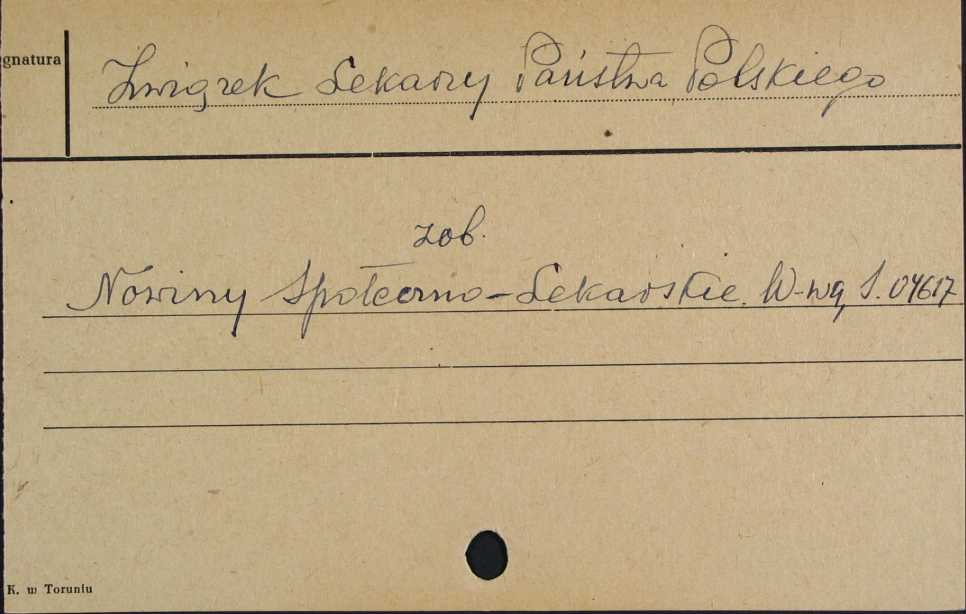 gnatura
Związek Lekarzy Państwa Polskiego
zob.
Nowiny Społeczno-Lekarskie. W-wa, S. 04617
K. w Toruniu